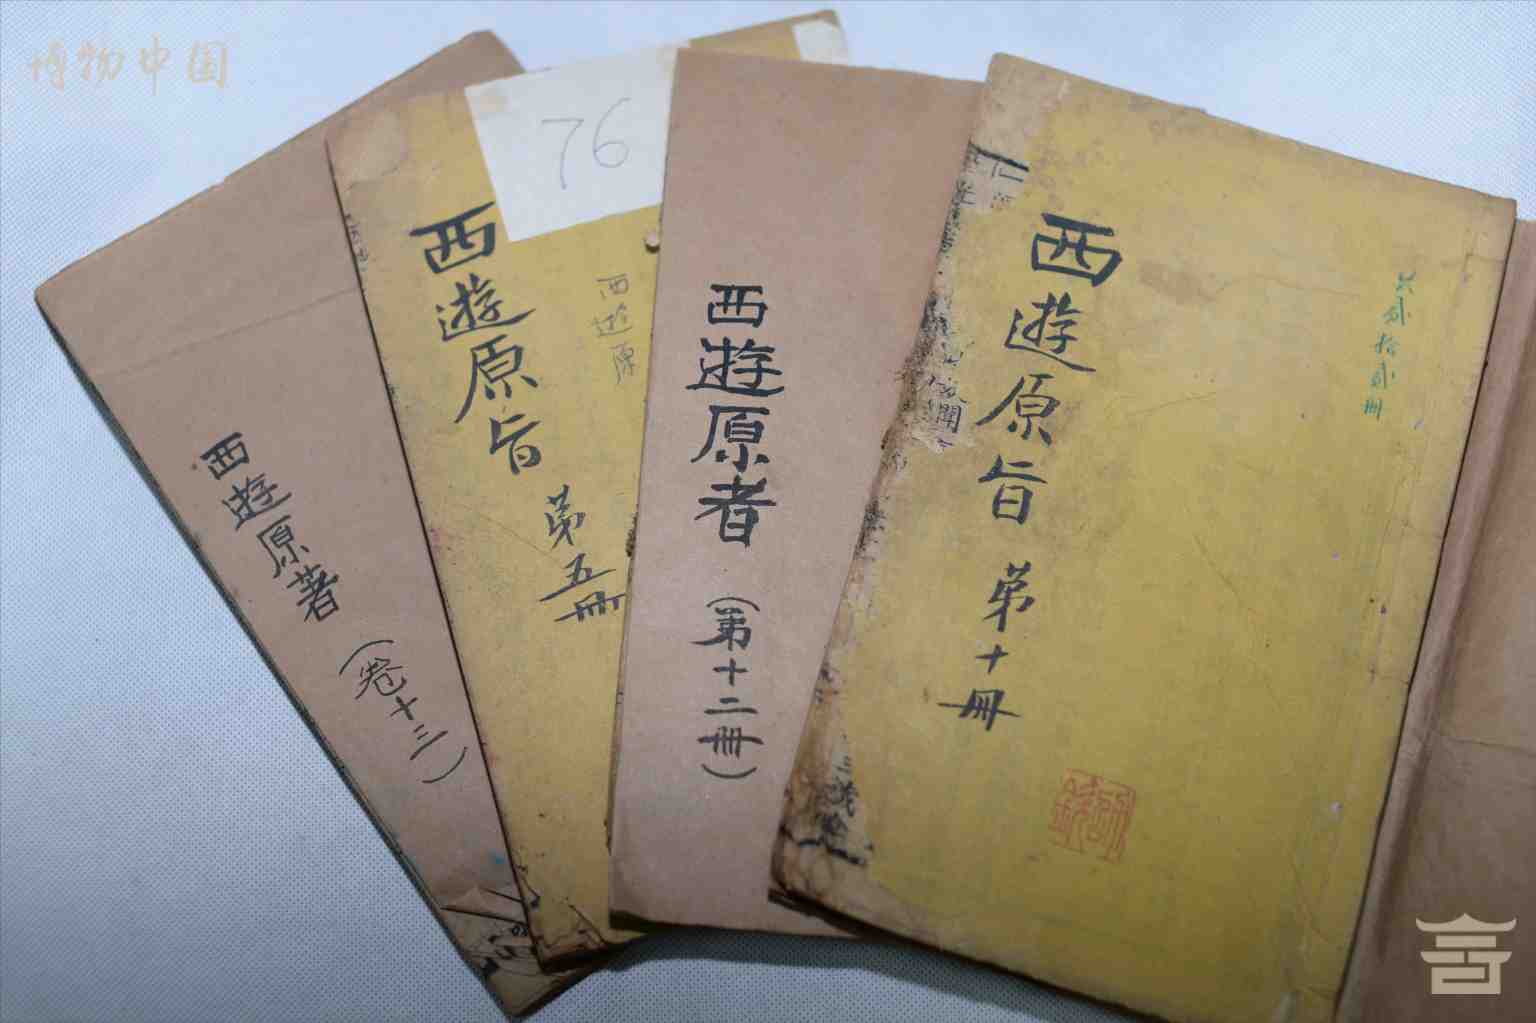 博物中国
西遊原著
（卷十三）
76
西遊原旨
第五冊
西遊原
西遊原者
（第十二冊）
西遊原旨
第十冊
共貳拾貳冊